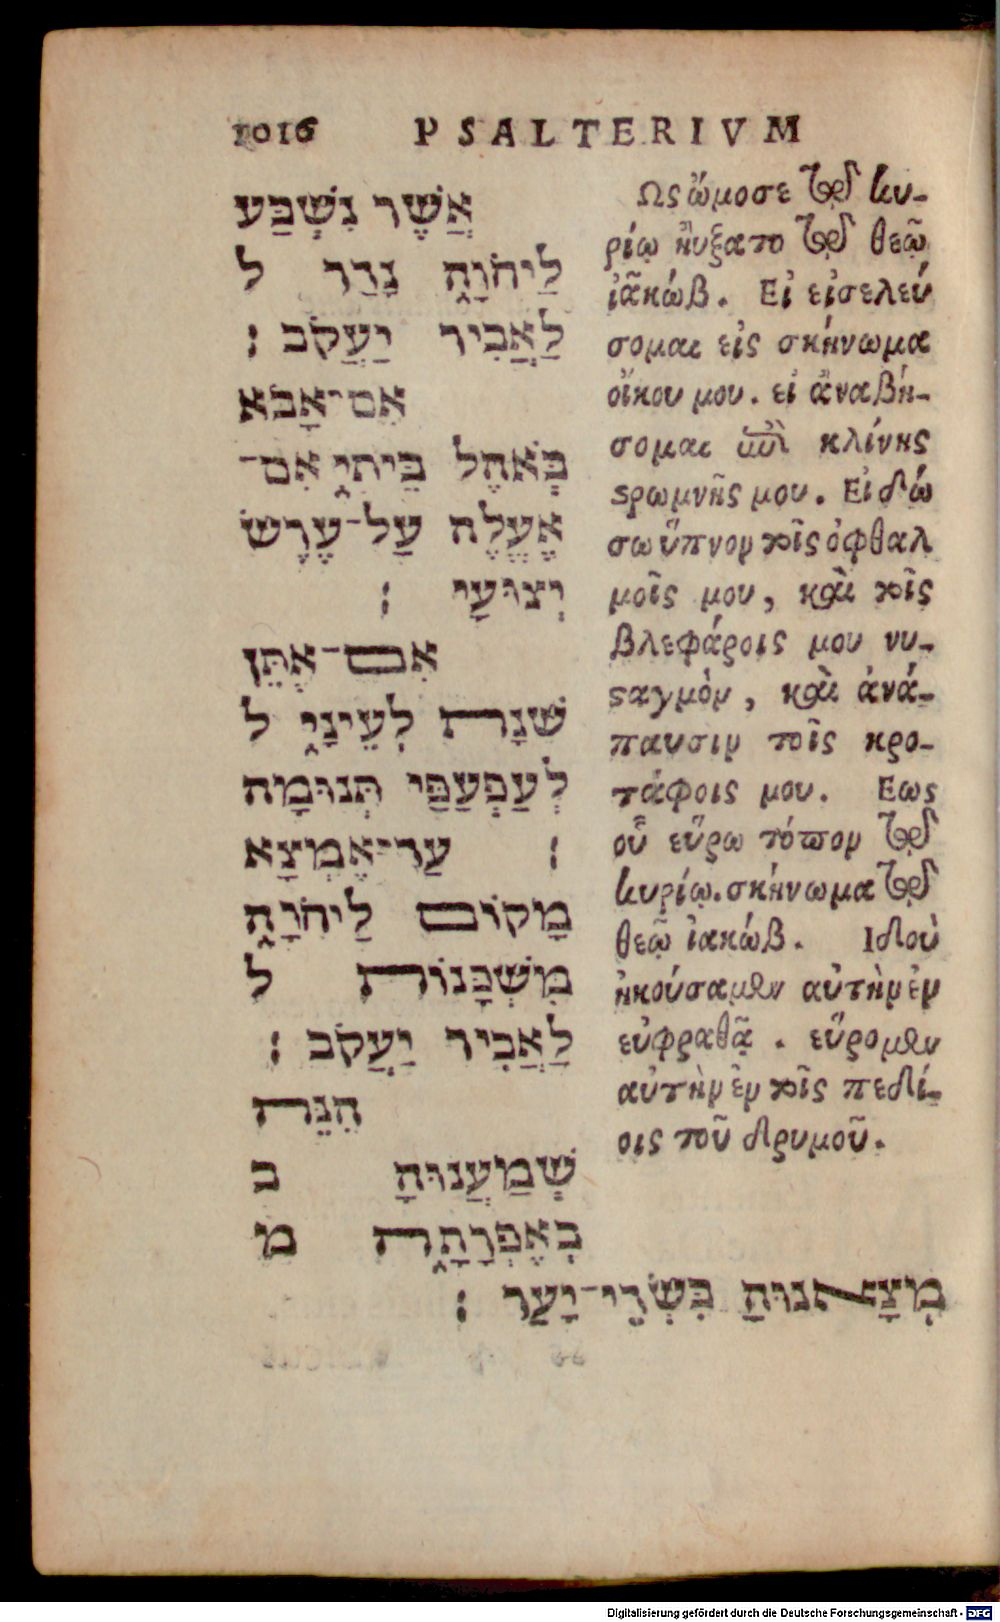 1016 PSALTERIVM
אֲשֶׁר נִשְׁבַּע
לַיהֹוָה נָדַר ל
לַאֲבִיר יַעֲקֹב׃
אִם־אָבֹא
בְּאֹהֶל בֵּיתִי אִם־
אֶעֱלֶה עַל־עֶרֶשׂ
יְצוּעָי׃
אִם־אֶתֵּן
שְׁנָת לְעֵינָי ל
לְעַפְעַפַּי תְּנוּמָה
׃ עַד־אֶמְצָא
מָקוֹם לַיהֹוָה
מִשְׁכָּנוֹת ל
לַאֲבִיר יַעֲקֹב׃
הִנֵּה
שְׁמַעֲנוּהָ ב
בְאֶפְרָתָה מ
מְצָאנוּהָ בִּשְׂדֵי־יָעַר׃
Ως ὤμοσε τῷ κυ-
ρίῳ ηὔξατο τῷ θεῷ
ἰακώβ. Εἰ εἰσελεύ
σομαι εἰς σκήνωμα
οἴκου μου. εἰ ἀναβή-
σομαι ἐπὶ κλίνης
στρωμνῆς μου. Εἰ δώ
σω ὕπνον τοῖς ὀφθαλ
μοῖς μου, καὶ τοῖς
βλεφάροις μου νυ-
σαγμὸν, καὶ ἀνά-
παυσιν τοῖς κρο-
τάφοις μου. Εως
οὗ εὕρω τόπον τῷ
κυρίῳ. σκήνωμα τῷ
θεῷ ἰακώβ. Ιδοὺ
ἠκούσαμεν αὐτὴν ἐν
εὐφραθᾷ. εὕρομεν
αὐτὴν ἐν τοῖς πεδί-
οις τοῦ δρυμοῦ.
Digitalisierung gefördert durch die Deutsche Forschungsgemeinschaft - DFG